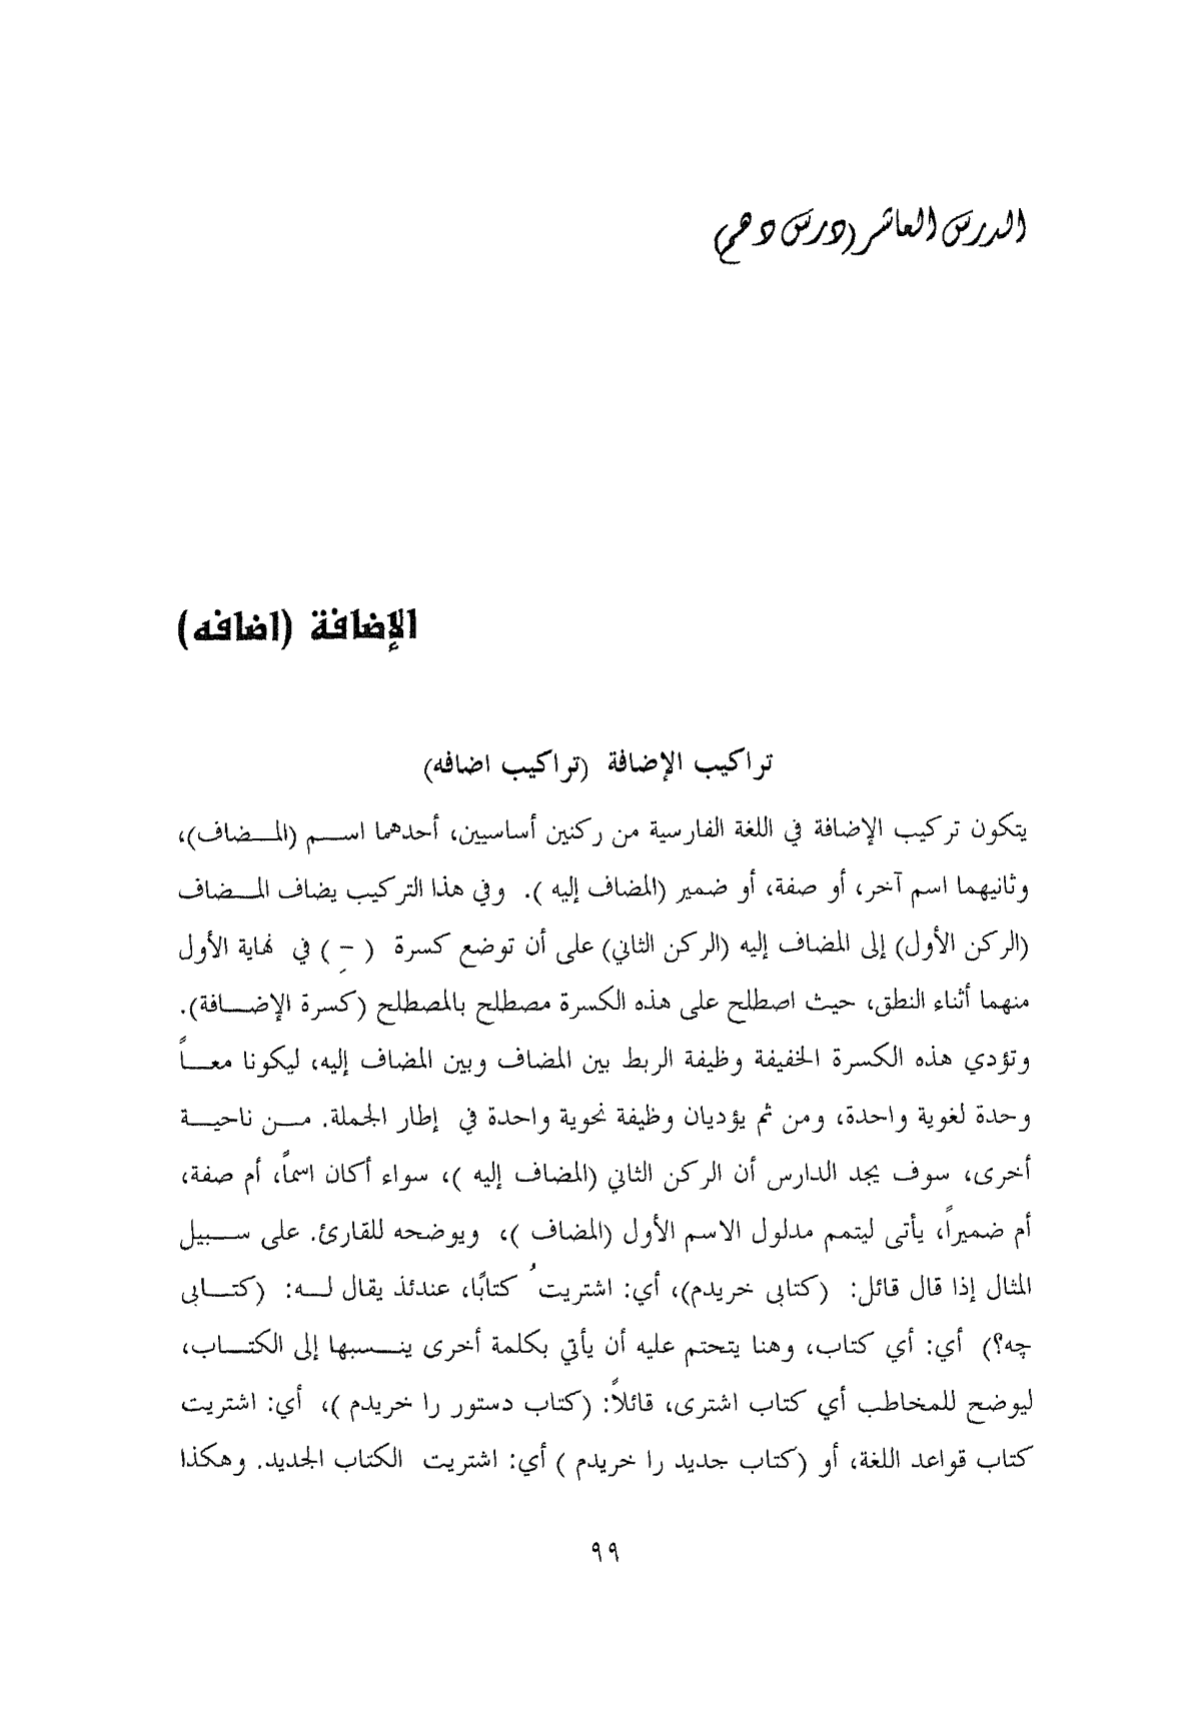 الدرس العاشر (درس دهم)
الإضافة (اضافه)
تراكيب الإضافة (تراكيب اضافه)
يتكون تركيب الإضافة في اللغة الفارسية من ركنين أساسيين، أحدهما اسم (المضاف)،
وثانيهما اسم آخر، أو صفة، أو ضمير (المضاف إليه ). وفي هذا التركيب يضاف المضاف
(الركن الأول) إلى المضاف إليه (الركن الثاني) على أن توضع كسرة ( ـِ ) في نهاية الأول
منهما أثناء النطق، حيث اصطلح على هذه الكسرة مصطلح بالمصطلح (كسرة الإضافة).
وتؤدي هذه الكسرة الخفيفة وظيفة الربط بين المضاف وبين المضاف إليه، ليكونا معاً
وحدة لغوية واحدة، ومن ثم يؤديان وظيفة نحوية واحدة في إطار الجملة. من ناحية
أخرى، سوف يجد الدارس أن الركن الثاني (المضاف إليه )، سواء أكان اسماً، أم صفة،
أم ضميراً، يأتى ليتمم مدلول الاسم الأول (المضاف )، ويوضحه للقارئ. على سبيل
المثال إذا قال قائل: (كتابى خريدم)، أي: اشتريتُ كتابًا، عندئذ يقال له: (كتابى
چه؟) أي: أي كتاب، وهنا يتحتم عليه أن يأتي بكلمة أخرى ينسبها إلى الكتاب،
ليوضح للمخاطب أي كتاب اشترى، قائلاً: (كتاب دستور را خريدم )، أي: اشتريت
كتاب قواعد اللغة، أو (كتاب جديد را خريدم ) أي: اشتريت الكتاب الجديد. وهكذا
٩٩